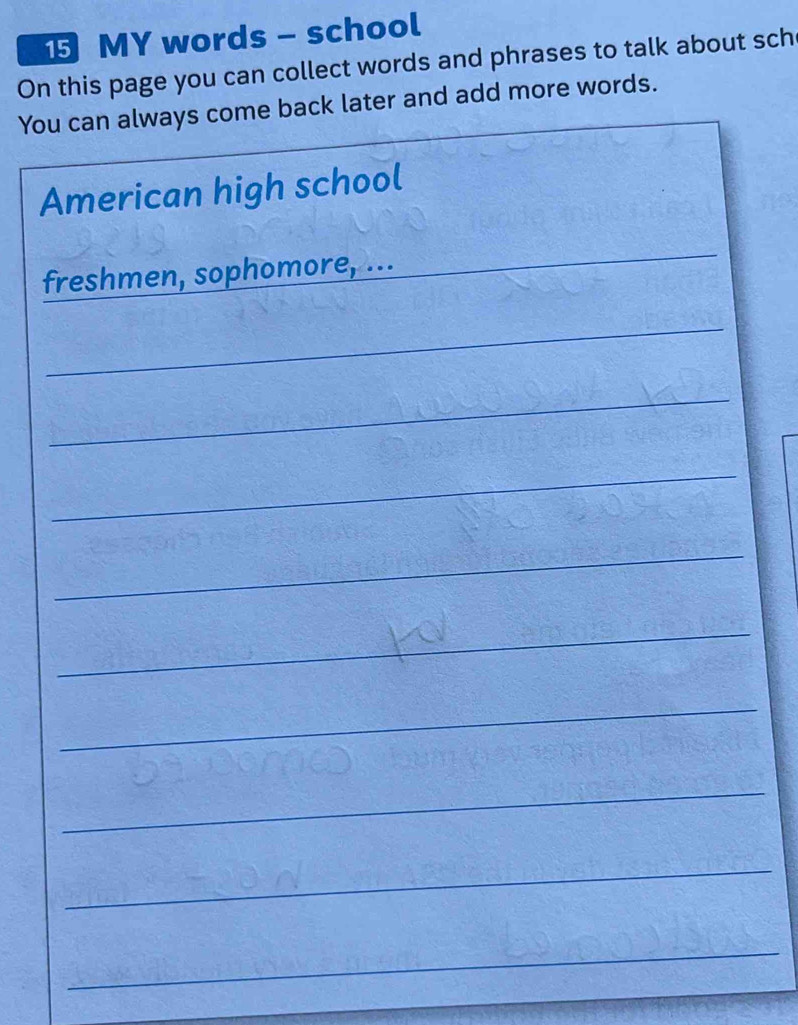 15 MY words – school
On this page you can collect words and phrases to talk about
You can always come back later and add more words.
American high school
freshmen, sophomore, ...